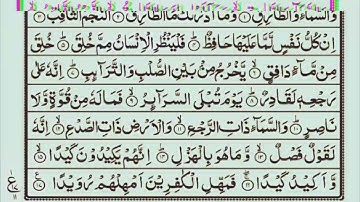 وَالسَّمَآءِ وَالطَّارِقِ ۝١ وَمَآ اَدْرٰىكَ مَا الطَّارِقُ ۝٢ النَّجْمُ الثَّاقِبُ ۝٣
اِنْ كُلُّ نَفْسٍ لَّمَّا عَلَيْهَا حَافِظٌ ۝٤ فَلْيَنْظُرِ الْاِنْسَانُ مِمَّ خُلِقَ ۝٥ خُلِقَ
مِنْ مَّآءٍ دَافِقٍ ۝٦ يَّخْرُجُ مِنْۢ بَيْنِ الصُّلْبِ وَالتَّرَآئِبِ ۝٧ اِنَّهٗ عَلٰى
رَجْعِهٖ لَقَادِرٌ ۝٨ يَوْمَ تُبْلَى السَّرَآئِرُ ۝٩ فَمَا لَهٗ مِنْ قُوَّةٍ وَّلَا
نَاصِرٍ ۝١٠ وَالسَّمَآءِ ذَاتِ الرَّجْعِ ۝١١ وَالْاَرْضِ ذَاتِ الصَّدْعِ ۝١٢ اِنَّهٗ
لَقَوْلٌ فَصْلٌ ۝١٣ وَّمَا هُوَ بِالْهَزْلِ ۝١٤ اِنَّهُمْ يَكِيْدُوْنَ كَيْدًا ۝١٥
وَّاَكِيْدُ كَيْدًا ۝١٦ فَمَهِّلِ الْكٰفِرِيْنَ اَمْهِلْهُمْ رُوَيْدًا ۝١٧